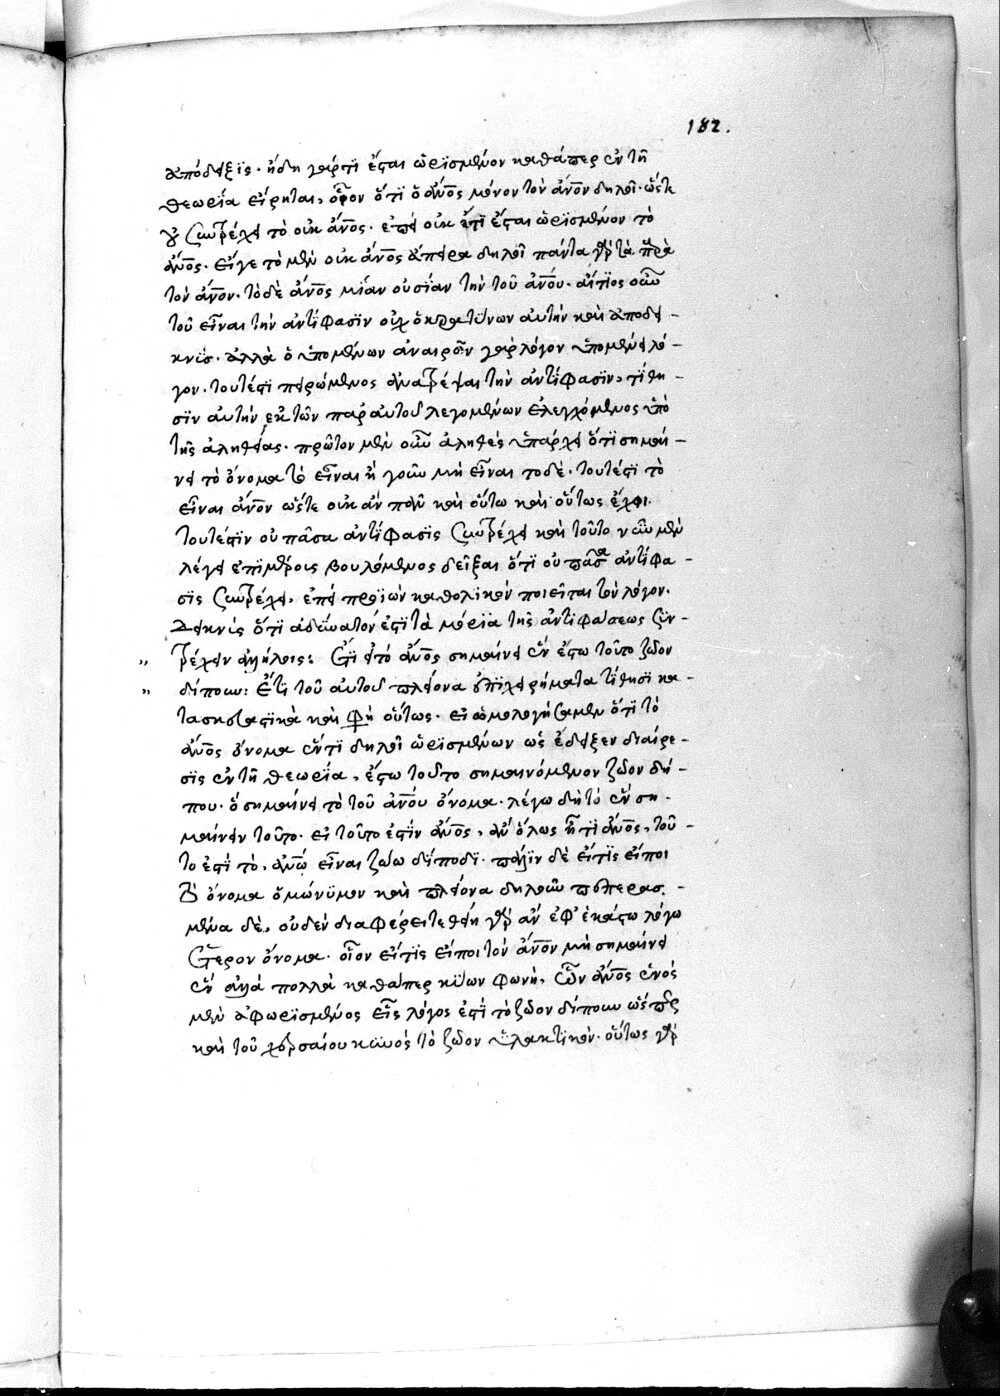 182.
ἀπόδειξις· ἤδη γάρ τι ἔσται ὡρισμένον καθάπερ ἐν τῇ
θεωρίᾳ εἴρηται, οἷον ὅτι ὁ ἄνος μόνον τὸν ἄνον δηλοῖ· ὥστε
οὐ συντρέχει τὸ οὐκ ἄνος· ἐπεὶ οὐκ ἔτι ἔσται ὡρισμένον τὸ
ἄνος· εἴγε τὸ μὲν οὐκ ἄνος ἄπειρα δηλοῖ πάντα γὰρ τὰ παρὰ
τὸν ἄνον· τὸ δὲ ἄνος μίαν οὐσίαν τὴν τοῦ ἄνου· αἴτιος οὖν
τοῦ εἶναι τὴν ἀντίφασιν οὐχ ὁ κρατύνων αὐτὴν καὶ ἀποδει-
κνύς· ἀλλὰ ὁ ὑπομένων ἀναιρῶν γὰρ λόγον ὑπομένει λό-
γον· τουτέστι πειρώμενος ἀνατρέψαι τὴν ἀντίφασιν, τίθη-
σιν αὐτὴν ἐκ τῶν παρ' αὐτοῦ λεγομένων ἐλεγχόμενος ὑπὸ
τῆς ἀληθείας· πρῶτον μὲν οὖν ἀληθὲς ὑπάρχει ὅτι σημαί-
νει τὸ ὄνομα τὸ εἶναι ἢ γοῦν μὴ εἶναι τοδὲ· τουτέστι τὸ
εἶναι ἄνον ὥστε οὐκ ἂν πᾶν καὶ οὕτω καὶ οὕτως ἔχοι
τουτέστιν οὐ πᾶσα ἀντίφασις συντρέχει καὶ τοῦτο νῦν μὲν
λέγει ἐπὶ μέρους βουλόμενος δεῖξαι ὅτι οὐ πᾶσα ἀντίφα-
σις συντρέχει, ἐπεὶ προϊὼν καθολικὸν ποιεῖται τὸν λόγον·
δεικνὺς ὅτι ἀδύνατόν ἐστι τὰ μόρια τῆς ἀντιφάσεως συν-
τρέχειν ἀλλήλοις: Ἔτι εἰ τὸ ἄνος σημαίνει ἓν ἔστω τοῦτο ζῶον
δίπουν: Ἔτι τοῦ αὐτοῦ πλείονα ἐπιχειρήματα τίθησι κα-
τασκευαστικὰ καὶ φη οὕτως· εἰ ὡμολογήσαμεν ὅτι τὸ
ἄνος ὄνομα ἕν τι δηλοῖ ὡρισμένων ὡς ἔδειξεν διαίρε-
σις ἐν τῇ θεωρίᾳ, ἔστω τοῦτο σημαινόμενον ζῶον δί-
που· ὃ σημαίνει τὸ τοῦ ἄνου ὄνομα· λέγω δὴ τὸ ἓν ση-
μαίνειν τοῦτο· εἰ τοῦτο ἐστὶν ἄνος, ἂν ὅλως ᾖ τὶ ἄνος, τοῦ-
το ἐστὶ τὸ, ἄνῳ εἶναι ζώω δίποδι· πάλιν δὲ εἴ τις εἴποι
τὸ ὄνομα ὁμώνυμον καὶ πλείονα δηλοῦν πεπερασ-
μένα δὲ, οὐδὲν διαφέρει τεθῇ γὰρ ἂν ἐφ' ἑκάστω λόγω
ἕτερον ὄνομα· οἷον εἴ τις εἴποι τὸν ἄνον μὴ σημαίνει
ἓν ἀλλὰ πολλὰ καθάπερ κύων φωνὴ, ὧν ἄνος ἑνὸς
μὲν ἀφωρισμένος εἷς λόγος ἐστὶ τὸ ζῶον δίπουν ὥσπερ
καὶ τοῦ χερσαίου κυνὸς τὸ ζῶον ὑλακτικὸν· οὕτως γὰρ